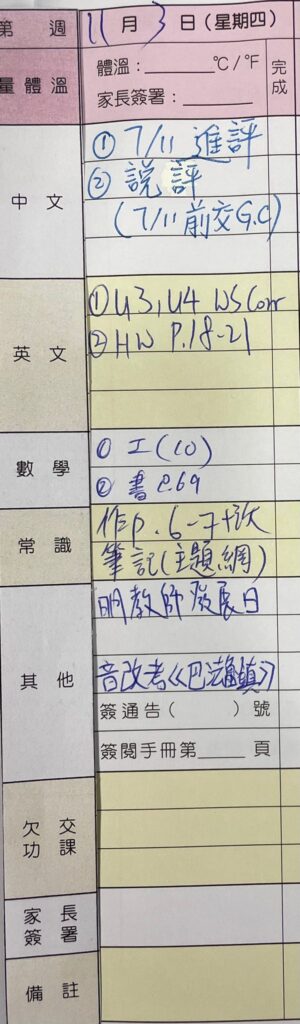 第 週 11月3日(星期四)
量體溫 體溫：______ °C/°F 完成
家長簽署：______
中文 ① 7/11 進評
② 說評
(7/11 前交G.C)
英文 ① U3, U4 WS Corr
② HW P.18-21
數學 ① 工(10)
② 書 P.69
常識 作p.6-7+改
筆記(主題網)
其他 明教師發展日
音改考《巴法鎮》
簽通告( )號
簽閱手冊第____頁
欠交功課
家長簽署
備註